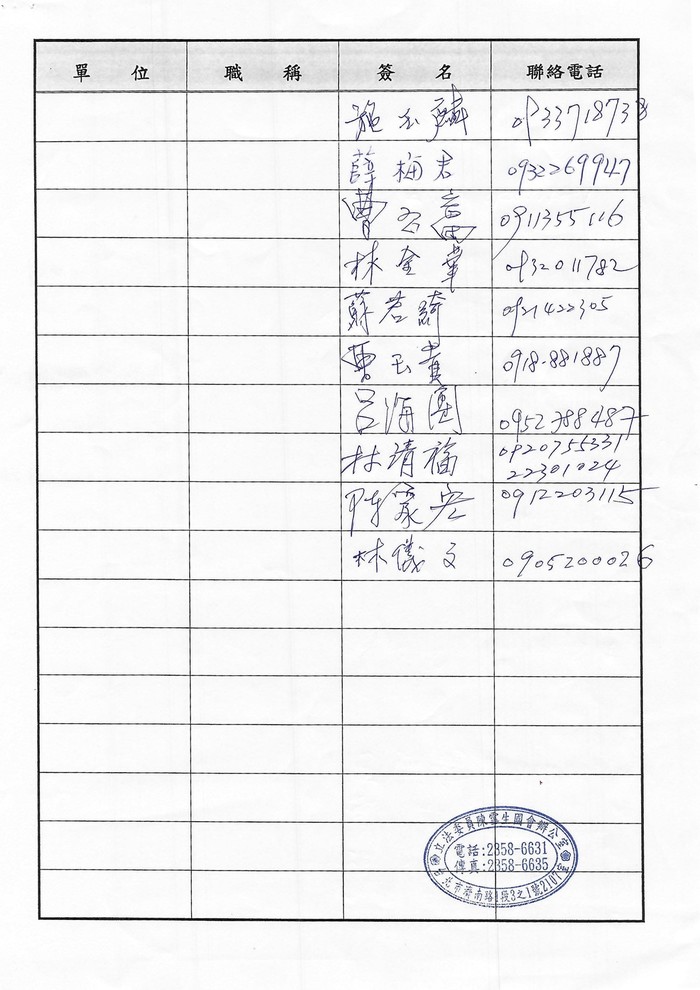 單 位 職 稱 簽 名 聯絡電話
施 玉 麟 0933718738
薛 梅 君 0932269947
曹 0911355116
林 金 0932011782
蘇 君 綺 0921422305
曹 玉 貴 0918-881887
呂 海 團 0952788487
林 清 福 0920755331
22301024
陳 宏 0912203115
林 儀 文 0905200026
立法委員陳雪生國會辦公室
電話:2358-6631
傳真:2358-6635
台北市濟南路1段3之1號2107室